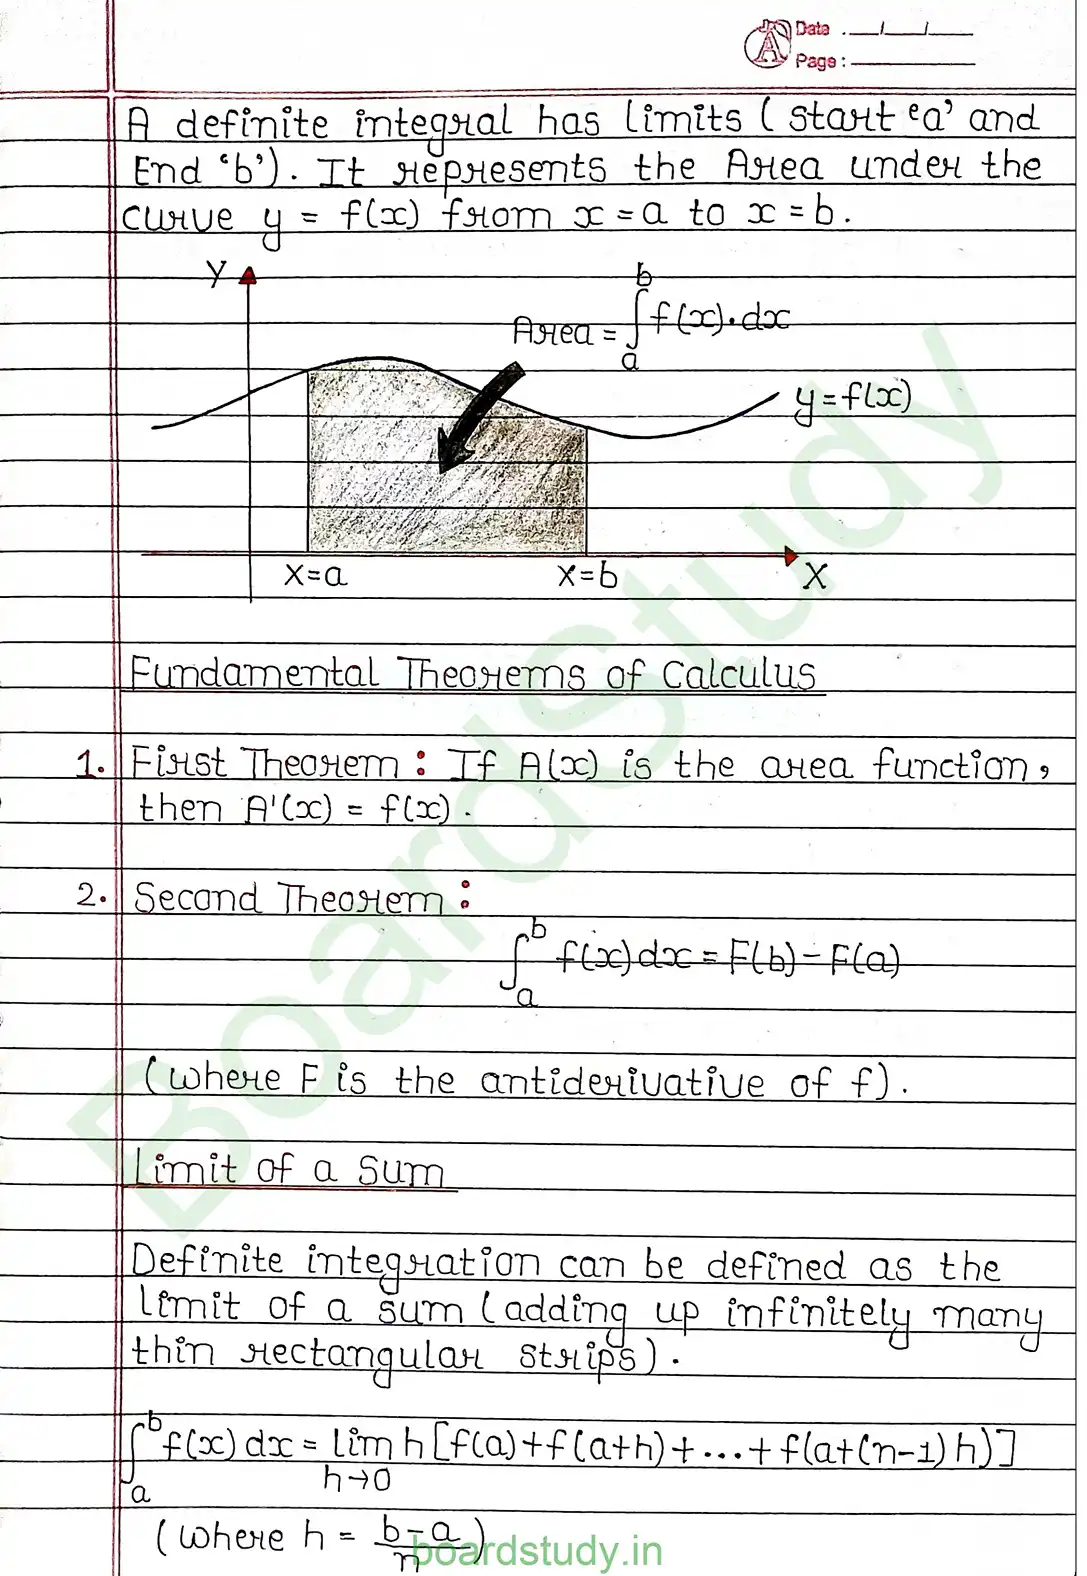 Date . __/__/__
Page :
A definite integral has limits ( start 'a' and
End 'b') . It represents the Area under the
curve y = f(x) from x = a to x = b .
Y
Area = ∫ₐᵇ f(x).dx
y=f(x)
X=a X=b X
Fundamental Theorems of Calculus
1. First Theorem : If A(x) is the area function,
then A'(x) = f(x) .
2. Second Theorem :
∫ₐᵇ f(x) dx = F(b) - F(a)
(where F is the antiderivative of f) .
Limit of a Sum
Definite integration can be defined as the
limit of a sum (adding up infinitely many
thin rectangular strips) .
∫ₐᵇ f(x) dx = lim h→0 h [f(a)+f(a+h)+...+f(a+(n-1)h)]
(where h = (b-a)/n)
BoardStudy
boardstudy.in